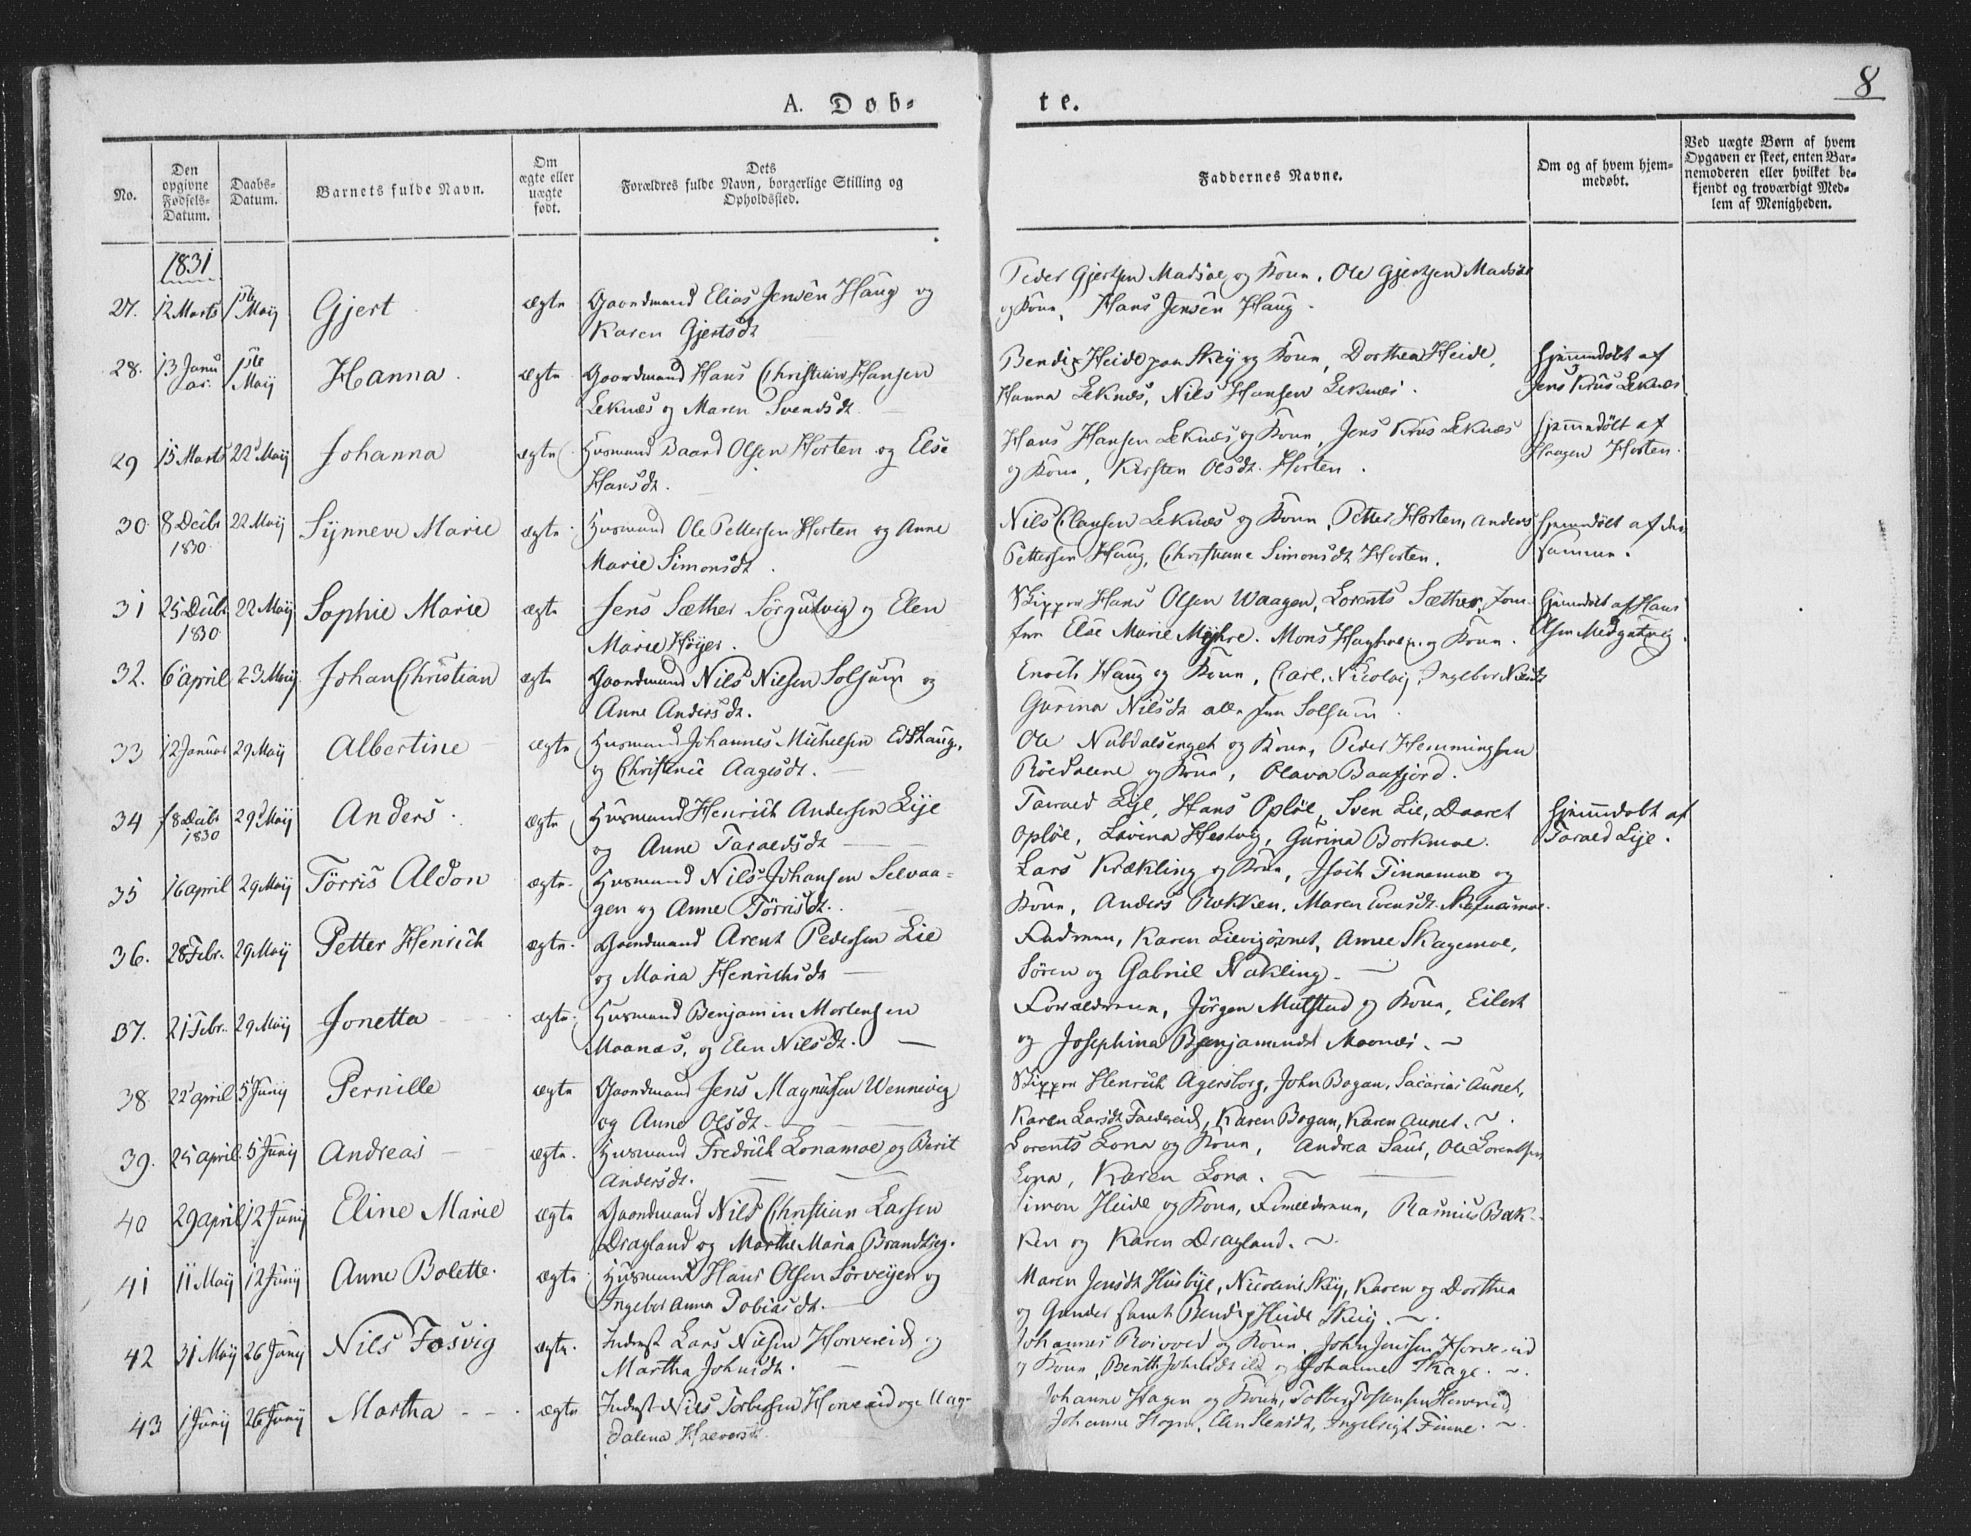 8
A. Døb-
te.
No.
Den opgivne Fødsels-Datum.
Daabs-Datum.
Barnets fulde Navn.
Om ægte eller uægte født.
Dets Forældres fulde Navn, borgerlige Stilling og Opholdssted.
Faddernes Navne.
Om og af hvem hjem-medøbt.
Ved uægte Børn af hvem Opgaven er skeet, enten Bar-nemoderen eller hvilket be-kjendt og troværdigt Med-lem af Menigheden.
1831
27. 12 Marts 1ste Maij Gjert ægte Gaardmand Elias Jensen Haug og
Karen Gjertsdt
Peder Gjertsen Madsøe og Kone, Ole Gjertsen Madsøe
og Kone, Hans Jensen Haug.
28. 13 Janu ar. 1ste Maij Hanna ægte Gaardmand Hans Christian Hansen
Leknæs og Maren Svendsdt.
Bendix Heide paa Skey og Kone, Dorthea Heide,
Hanna Leknæs, Nils Hansen Leknæs.
Hjemmedøbt af
Jens Krus Leknæs
29 15 Marts 22 Maij Johanna ægte Husmand Baard Olsen Horten og Else
Hansdt.
Hans Hansen Leknæs og Kone, Jens Krus Leknæs
og Kone, Kirsten Olsdt. Horten.
Hjemmedøbt af
Haagen Horten.
30. 8 Decbr 1830. 22 Maij Synneve Marie ægte Husmand Ole Pettersen Horten og Anne
Marie Simonsdt.
Nils Clausen Leknæs og Kone, Petter Horten, Anders
Pettersen Haug, Christiane Simonsdt Horten.
Hjemmedøbt af den
samme.
31 25 Decbr. 1830 22 Maij Sophie Marie ægte Jens Sæther Sørgutvig og Elen
Marie Høyer.
Skipper Hans Olsen Waagen, Lorents Sæther, Jom-
fru Else Marie Myhre. Mons og Kone.
Hjemdøbt af Hans
Olsen Medgutvig.
32. 6 april 23 Maij Johan Christian ægte Gaardmand Nils Nilsen Solsum og
Anne Andersdt.
Enoch Haug og Kone, Carl, Nicolai, Ingebor Nilsdt
Gurina Nilsdt alle fra Solsum.
33 12 Januar 29 Maij Albertine ægte Husmand Johannes Michelsen Edshaug,
og Christence Aagesdt.
Ole Nubdalsenget og Kone, Peder Hemmingsen
Röedalene og Kone, Olava Baafjord.
34 18 Decbr 1830 29 Maij Anders. ægte Husmand Henrich Andersen Lije
og Anne Taraldsdt
Tarald Lije, Hans Opløe, Sven Lie, Daaret
Opløe, Lavina Hestvig, Gurina Borkmoe.
Hjemmedøbt af
Tarald Lije.
35 16 april 29 Maij Törris Aldon ægte. Husmand Nils Johansen Selvaa-
gen og Anne Törrisdt.
Lars Krækling og Kone, Isach Finnemoe og
Kone, Anders Rokken, Maren Evensdt
36. 28 Febr. 29 Maij Petter Henrich ægte. Gaardmand Arent Pedersen Lie
og Maria Henrichsdt
Faderen, Karen Lievigövnet, Amee Skagemoe,
Sören og Gabriel Nakling.
37. 21 Febr. 29 Maij Jonetta ægte. Husmand Benjamin Mortensen
Moanæs, og Elen Nilsdt.
Forældrerne, Jörgen Mulstad og Kone, Eilert
og Josephina Benjaminsdt Moanæs.
38 22 april 5 Junij Pernille ægte Gaardmand Jens Magnussen Wennevig
og Anne Olsdt.
Skipper Henrich Agersborg, John Bogan, Sacarias Aunet,
Karen Larsdt Fardereid, Karen Bogan, Karen Aunet.
39. 25 april. 5 Junij Andreas ægte. Husmand Fredrich Lonamoe og Berit
Andersdt.
Lorents Lona og Kone, Andrea Saur, Ole Lorentsen
Lona, Karen Lona.
40 29 april 12 Junij Eline Marie ægte Gaardmand Nils Christian Larsen
Dragland og Marthe Maria Brandtseg.
Simon Heide og Kone, Forældrerne, Rasmus Bak-
ken og Karen Dragland.
41 11 Maij 12 Junij Anne Bolette. ægte Husmand Hans Olsen Sörveyen og
Ingebor Anna Tobiasdt.
Maren Jensdt Husbye, Nicolaus Skey, Karen og Dorthea
og Gunder samt Bendix Heide Skey.
42 31 Maij 26 Junij Nils Fosvig ægte. Inderst Lars Nilsen Horvereid og
Martha Johnsdt.
Johannes Roivoed og Kone, John Jensen Horvereid
og Kone, Berith Johnsdt og Johanne Skage.
43 1 Junij 26 Junij Martha ægte Inderst Nils Torbersen Horvereid og Mag-
dalena Halvorsdt.
Johanne Hagen og Kone, Torber Tostensen Horvereid,
Johanne Hagen, Elen Stensdt, Ingebrigt Finne.